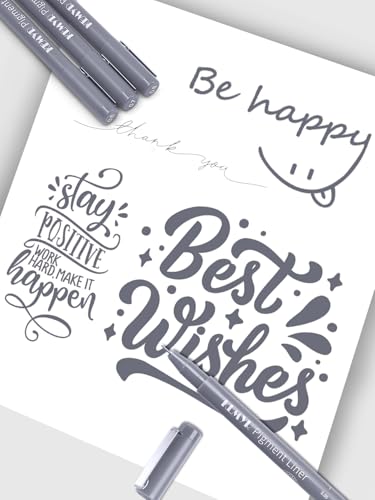 Pigment
Pigment
Pigment
Be happy
thank you
stay
POSITIVE
WORK
HARD, MAKE IT
happen
Best
Wishes
Pigment Liner